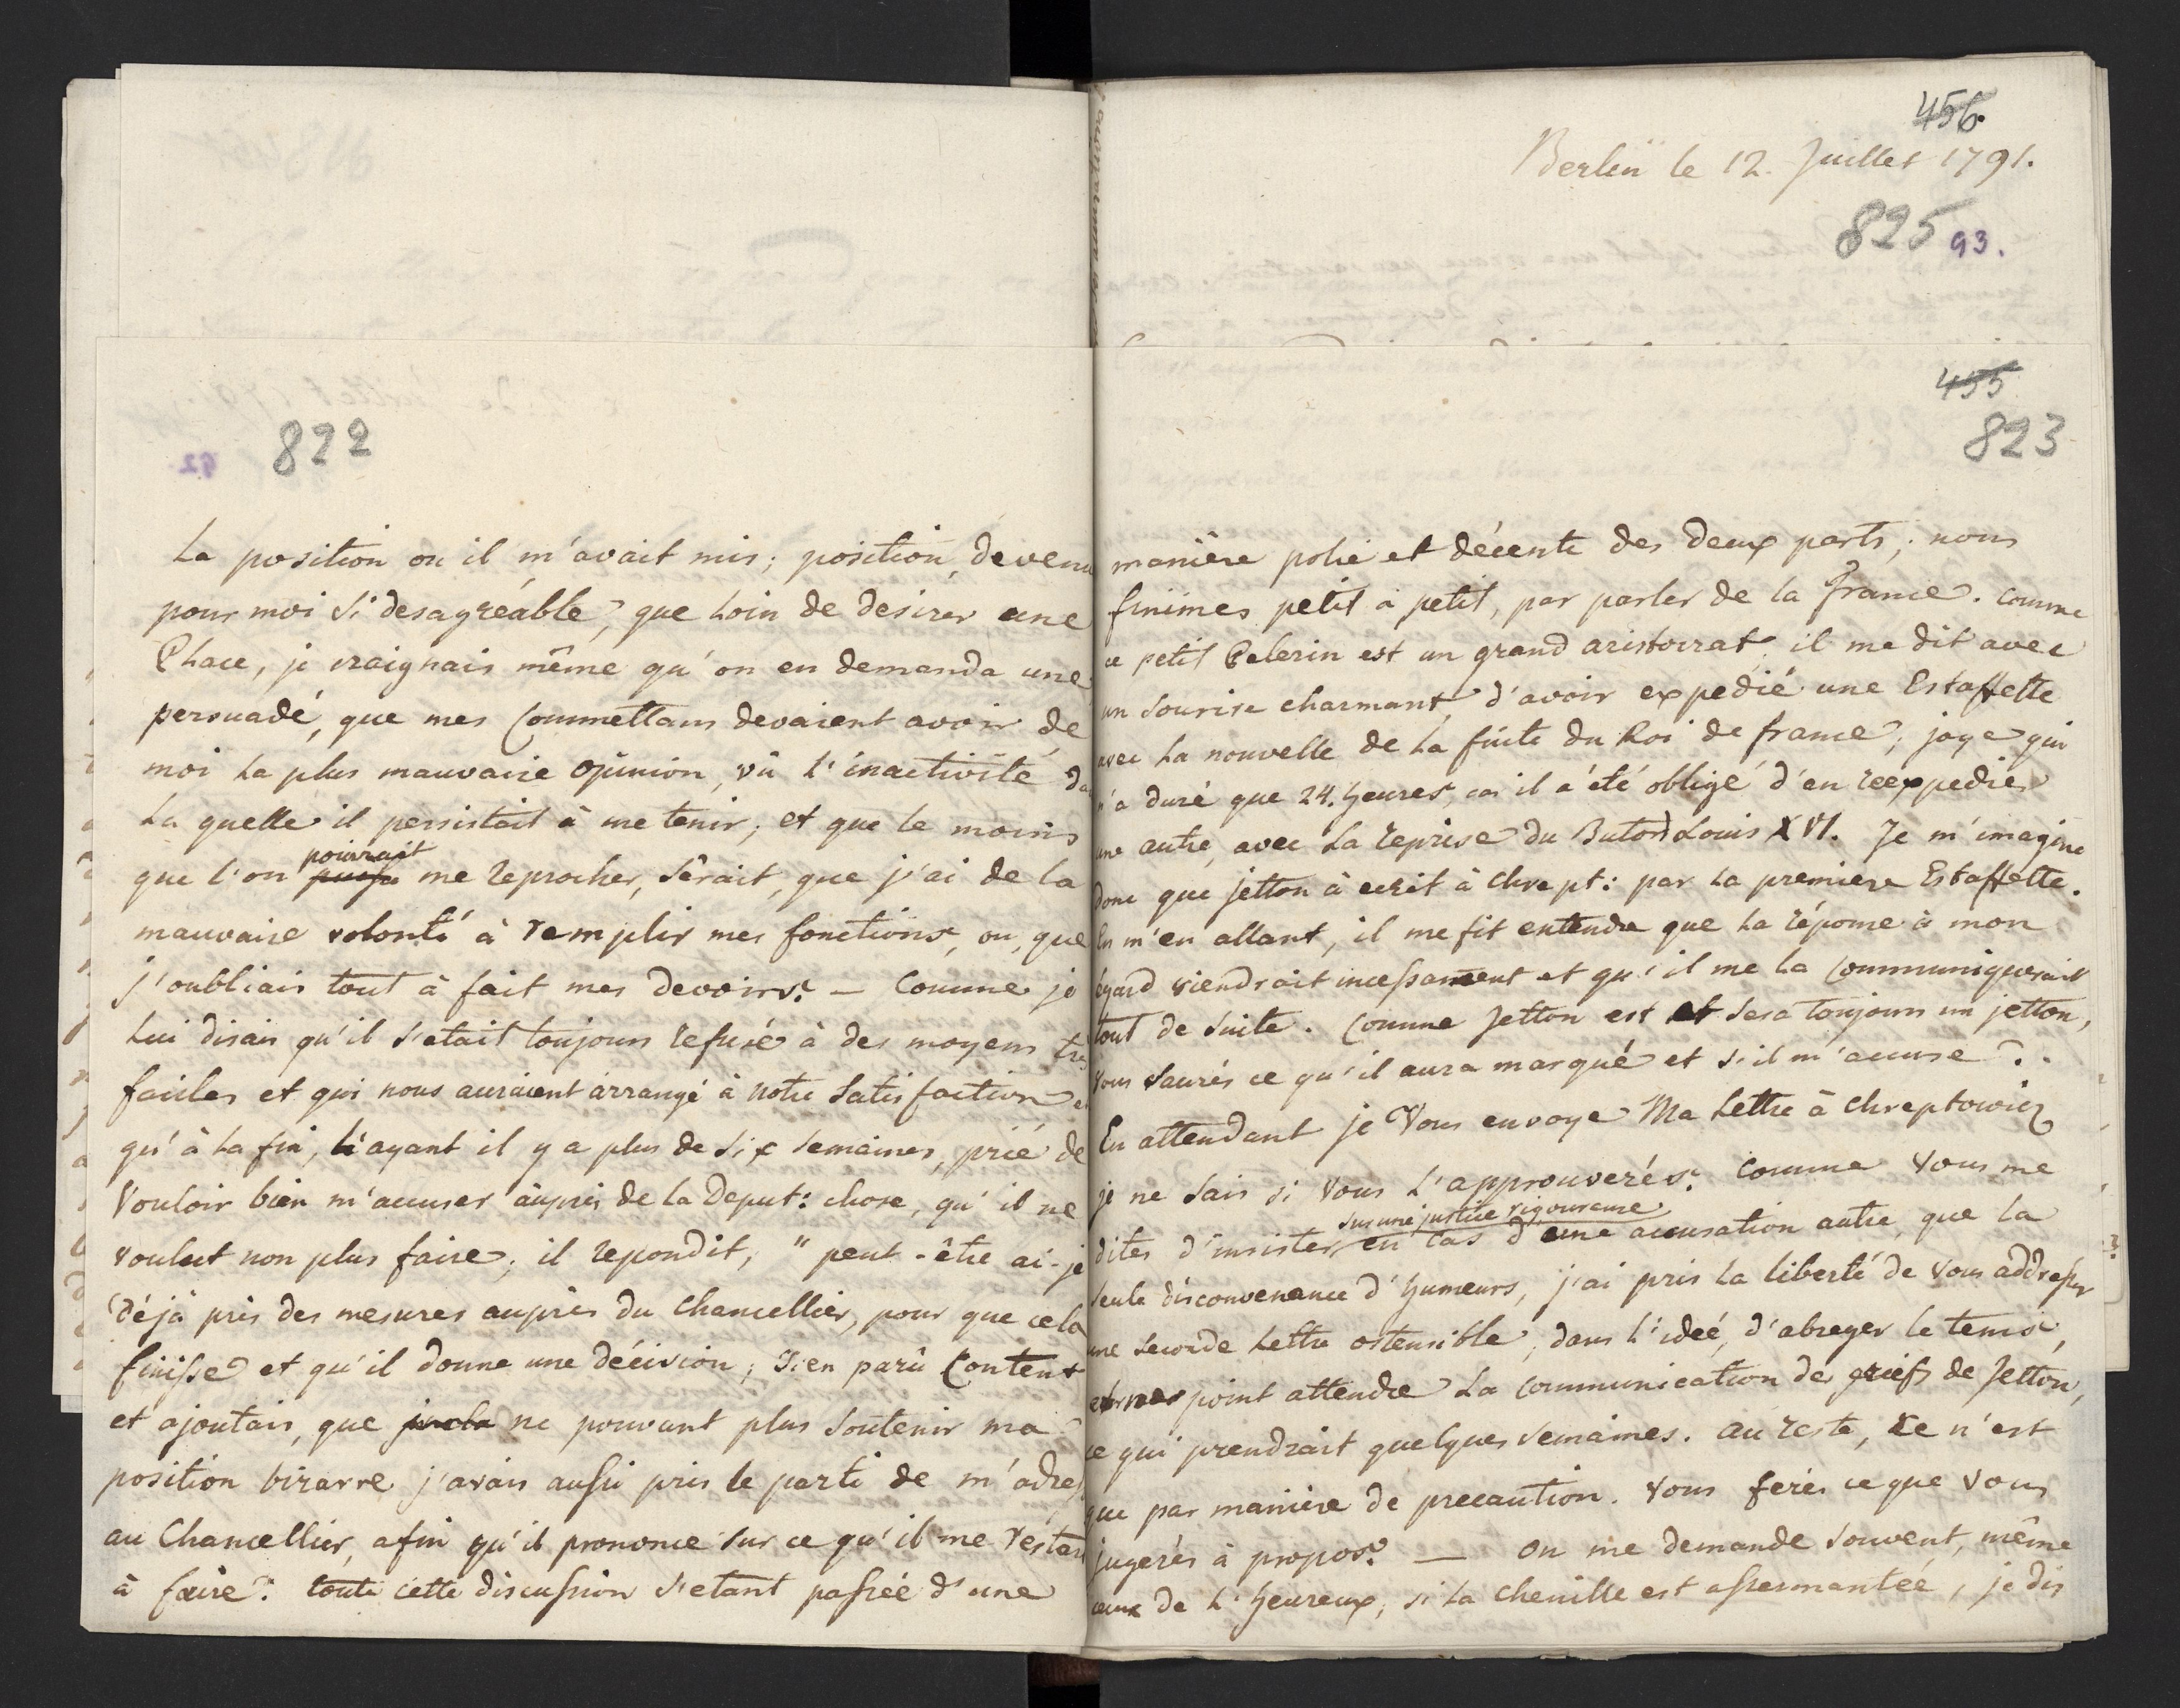 456.
Berlin le 12. Juillet 1791.
825 93.
822
La position ou il m'avait mis; position, devenu
pour moi si desagréable, que loin de desirer une
Place, je craignais même qu'on en demanda une
persuadé, que mes Commettans devaient avoir de
moi la plus mauvaise opinion, vû l'inactivité da
la quelle il persistait à me tenir; et que le moins
pouvrait
que l'on puisse me reprocher, sêrait, que j'ai de la
mauvaise volonté à remplir mes fonctions, ou, que
j'oubliais tout à fait mes devoirs. — Comme je
lui disais qu'il s'etait toujours refusé à des moyens trè
faciles et qui nous auraient arrangé à notre satisfaction e
qu'à la fin, l'ayant il y a plus de six semaines, prié de
vouloir bien m'accuser auprès de la Deput: chose, qu'il ne
voulut non plus faire; il repondit, "peut-être ai-je
déjà pris des mesures auprès du Chancellier, pour que cela
finisse et qu'il donne une décision; J'en parû content
et ajoutais, que ne pouvant plus soutenir ma
position bizarre j'avais aussi pris le parti de m'adres
au Chancellier, afin qu'il prononce sur ce qu'il me réstai
à faire. toute cette discussion s'etant passée d'une
455
823
manière polie et décente des deux parts; nous
finimes petit à petit, par parler de la france. Comme
ce petit Pelerin est un grand aristocrat, il me dit avec
un sourire charmant d'avoir expedié une Estaffette
avec la nouvelle de la fuite du Roi de france; joye qui
n'a duré que 24. heures, car il a été obligé d'en réexpedier
une autre, avec la reprise du Butord Louis XVI. Je m'imagine
donc que jetton à ecrit à Chrept: par la premiere Estaffette.
En m'en allant, il me fit entendre que la réponse à mon
égard viendrait incessament et qu'il me la communiquerait
tout de suite. Comme Jetton est et sera toujours un jetton,
vous saurés ce qu'il aura marqué et s'il m'accuse?.
En attendant je Vous envoye Ma Lettre à Chreptowicz
je ne sais si Vous l'approuverés. Comme Vous me
sur une justice rigoureuse
dites d'insister en cas d'une accusation autre, que la
seule disconvenance d'humeurs, j'ai pris la liberté de Vous addresser
une seconde Lettre ostensible, dans l'ideé, d'abreger le tems,
point attendre la communication de griefs de Jetton,
ce qui prendrait quelques semaines. Au reste, ce n'est
que par manière de precaution. Vous ferés ce que vous
jugerés à propos. — On me demande souvent, même
ceux de L'heureux, si la chenille est assermantéé, je dis